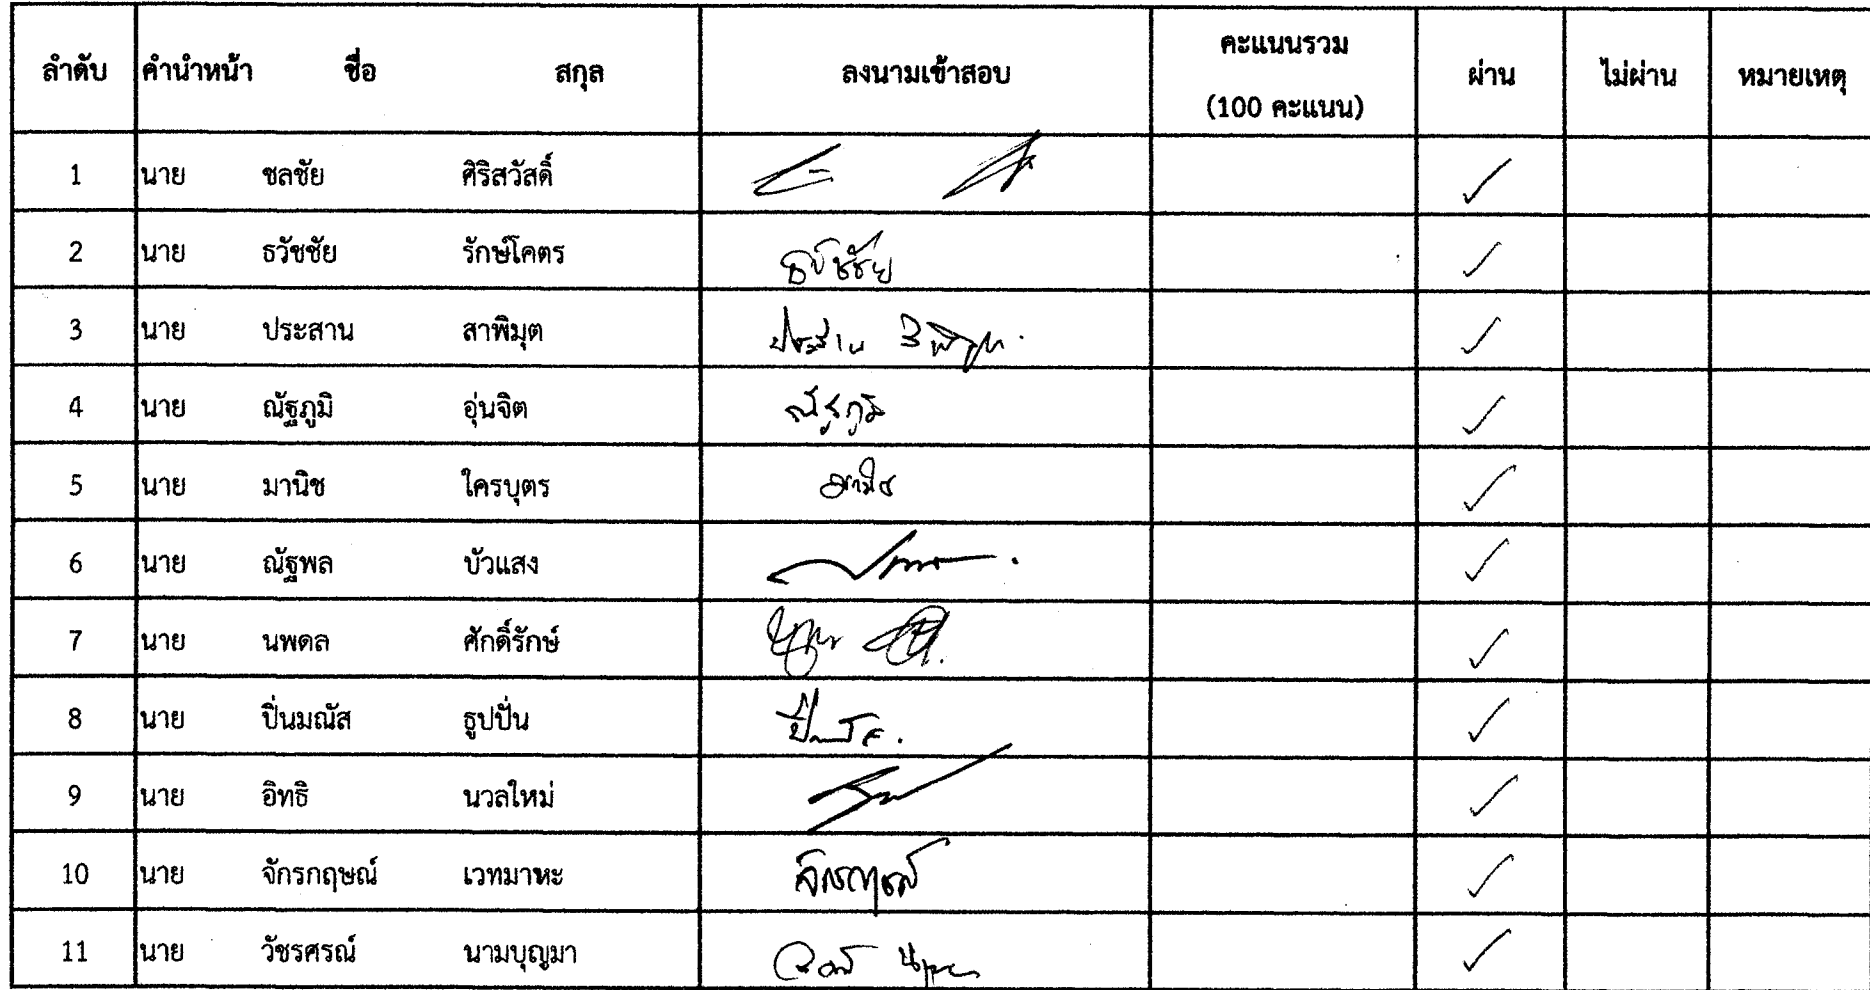 ลำดับ คำนำหน้า ชื่อ สกุล ลงนามเข้าสอบ คะแนนรวม (100 คะแนน) ผ่าน ไม่ผ่าน หมายเหตุ
1 นาย ชลชัย ศิริสวัสดิ์ ✓
2 นาย ธวัชชัย รักษ์โคตร ธวัชชัย ✓
3 นาย ประสาน สาพิมุต ประสาน ✓
4 นาย ณัฐภูมิ อุ่นจิต ณัฐภูมิ ✓
5 นาย มานิช ใครบุตร มานิช ✓
6 นาย ณัฐพล บัวแสง ✓
7 นาย นพดล ศักดิ์รักษ์ ✓
8 นาย ปิ่นมณัส ธูปปั่น ✓
9 นาย อิทธิ นวลใหม่ ✓
10 นาย จักรกฤษณ์ เวทมาหะ จักรกฤษณ์ ✓
11 นาย วัชรศรณ์ นามบุญมา ✓